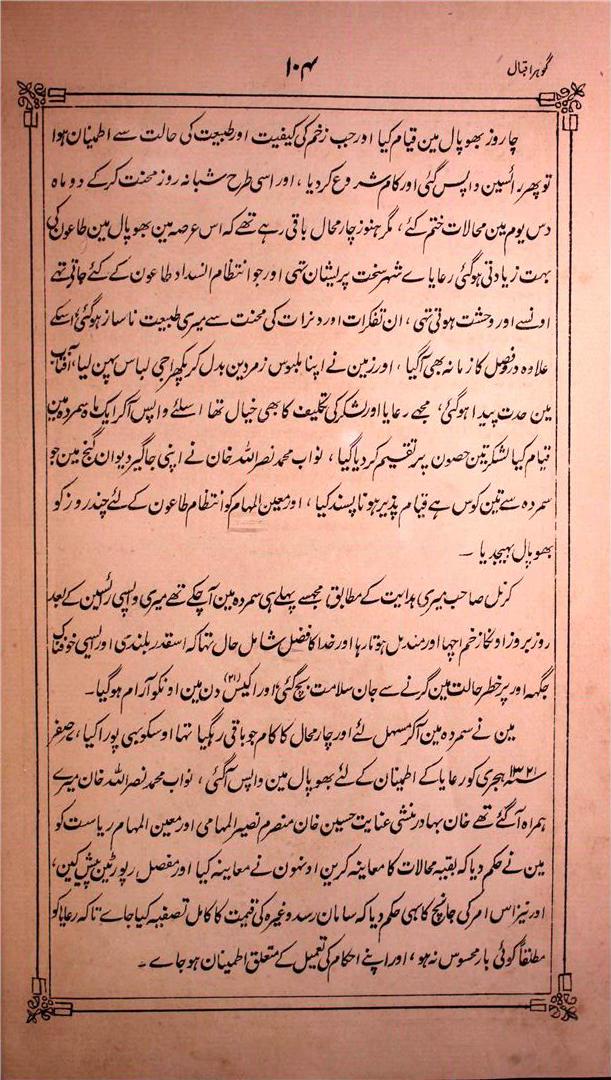 گوہر اقبال
۱۰۴
چار روز بھوپال مین قیام کیا اور جب زخم کی کیفیت اور طبیعت کی حالت سے اطمینان ہوا
تو پھر رائسین واپس گئی اور کام شروع کر دیا ، اور اسی طرح شبانہ روز محنت کرکے دو ماہ
دس یوم مین محالات ختم کئے ، مگر ہنوز چار محال باقی رہے تھے کہ اس عرصہ مین بھوپال مین طاعون کی
بہت زیادتی ہوگئی رعایاے شہر سخت پریشان تہی اور جو انتظام انسداد طاعون کے کئے جاتے تہے
اونسے اور وحشت ہوتی تہی ، ان تفکرات اور دن رات کی محنت سے میری طبیعت ناساز ہوگئی ، اسکے
علاوہ درو فصل کا زمانہ بھی آگیا ، اور زمین نے اپنا ملبوس زمردین بدل کر پکھراجی لباس پہن لیا ، آفتاب
مین حدت پیدا ہوگئی ، مجھے رعایا اور لشکر کی تکلیف کا بھی خیال تھا اسلئے واپس آکر ایک ماہ سمردہ مین
قیام کیا لشکر تین حصون پر تقسیم کر دیا گیا ، نواب محمد نصر اللہ خان نے اپنی جاگیر دیوان گنج مین جو
سمردہ سے تین کوس ہے قیام پذیر ہونا پسند کیا ، اور معین المہام کو انتظام طاعون کے لئے چند روز کو
بھوپال بہیجدیا ۔
کرنل صاحب میری ہدایت کے مطابق مجسے پہلے ہی سمردہ مین آچکے تھے میری واپسی رائسین کے بعد
روز بروز اونکا زخم اچہا اور مندمل ہوتا رہا اور خدا کا فضل شامل حال تہا کہ اسقدر بلندی اور ایسی خوفناک
جگہہ اور پر خطر حالت مین گرنے سے جان سلامت بچ گئی ، اور اکیس (۲۱) دن مین اونکو آرام ہوگیا ۔
مین نے سمردہ مین آکر مسہل لئے اور چار محال کا کام جو باقی رہگیا تہا اوسکو بہی پورا کیا ، صفر
سنہ ۱۳۲۱ ہجری کو رعایا کے اطمینان کے لئے بھوپال مین واپس آگئی ، نواب محمد نصر اللہ خان میرے
ہمراہ آگئے تھے خان بہادر منشی عنایت حسین خان منصرم نصیر المہامی اور معین المہام ریاست کو
مین نے حکم دیا کہ بقیہ محالات کا معاینہ کرین اونہون نے معاینہ کیا اور مفصل رپورٹین پیش کین ،
اور نیز اس امر کی جانچ کا بہی حکم دیا کہ سامان رسد وغیرہ کی قیمت کا کامل تصفیہ کیا جاے تا کہ رعایا کو
مطلقاً کوئی بار محسوس نہ ہو ، اور اپنے احکام کی تعمیل کے متعلق اطمینان ہو جاے ۔